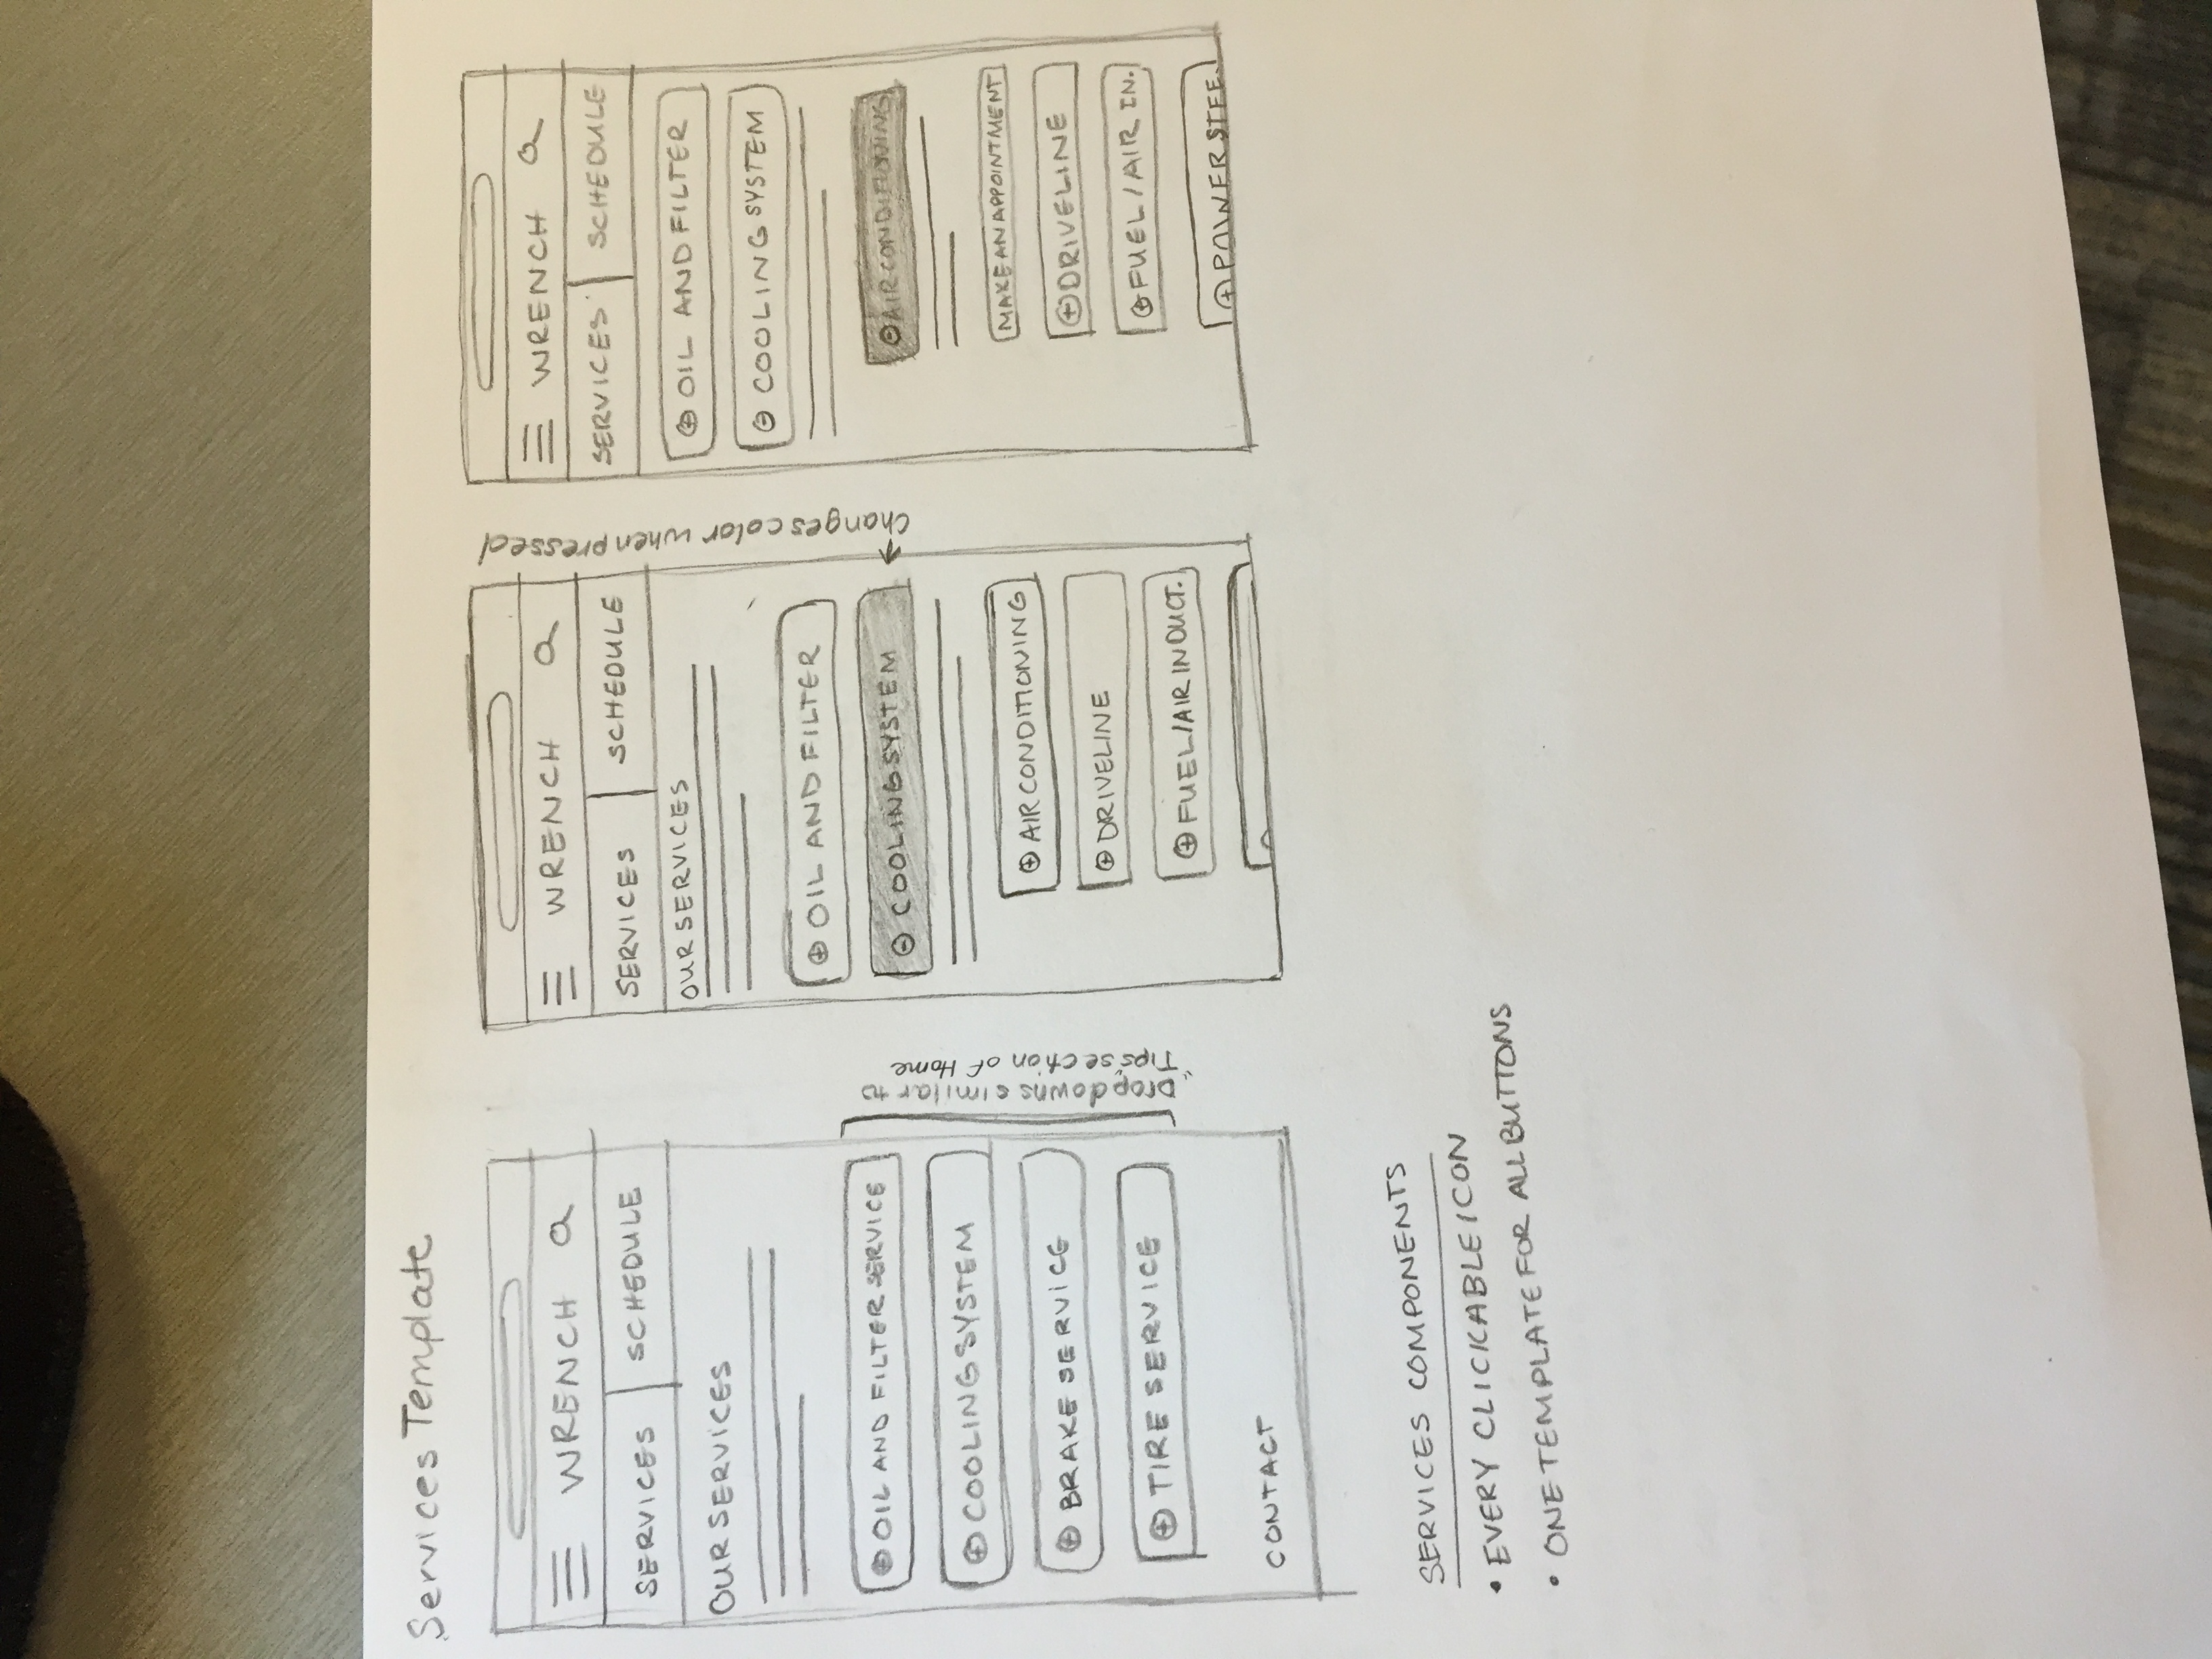 Services Template
WRENCH
SERVICES
SCHEDULE
OUR SERVICES
OIL AND FILTER SERVICE
COOLING SYSTEM
BRAKE SERVICE
TIRE SERVICE
CONTACT
Dropdowns similar to
"Tips" section of Home
WRENCH
SERVICES
SCHEDULE
OUR SERVICES
OIL AND FILTER
COOLING SYSTEM
AIR CONDITIONING
DRIVELINE
FUEL/AIR INDUCT.
changes color when pressed
WRENCH
SERVICES
SCHEDULE
OIL AND FILTER
COOLING SYSTEM
AIR CONDITIONING
MAKE AN APPOINTMENT
DRIVELINE
FUEL/AIR IN.
POWER STEE.
SERVICES COMPONENTS
• EVERY CLICKABLE ICON
• ONE TEMPLATE FOR ALL BUTTONS